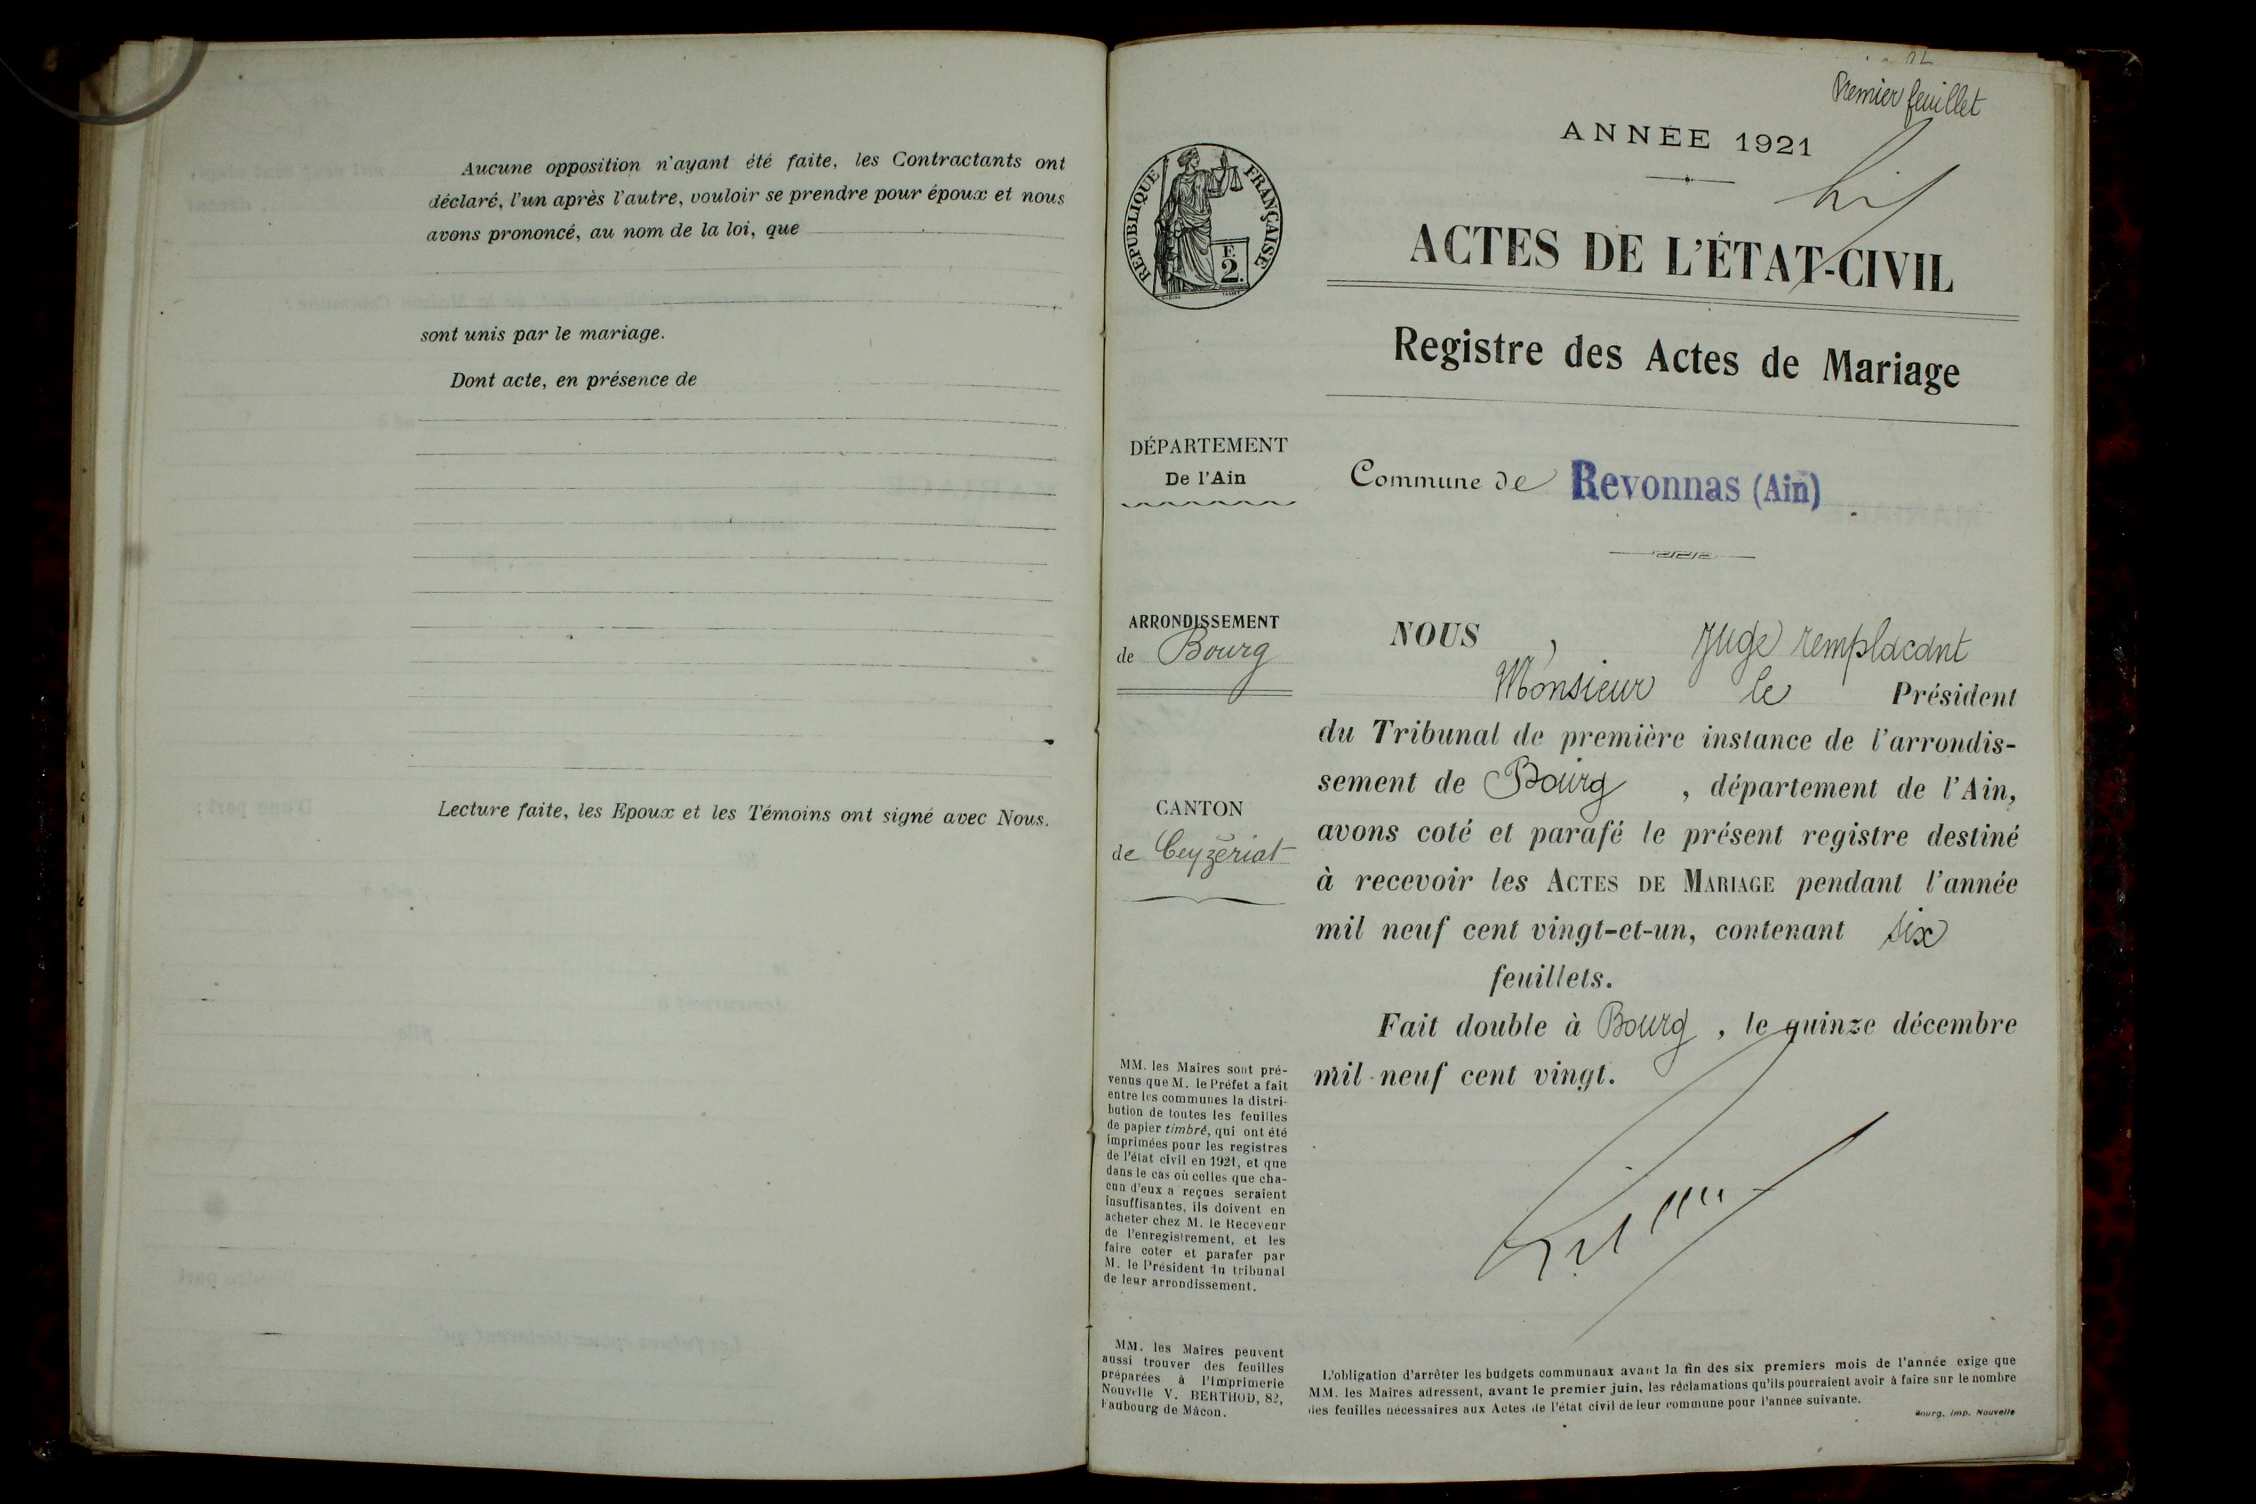 Aucune opposition n'ayant été faite, les Contractants ont
déclaré, l'un après l'autre, vouloir se prendre pour époux et nous
avons prononcé, au nom de la loi, que
sont unis par le mariage.
Dont acte, en présence de
Lecture faite, les Epoux et les Témoins ont signé avec Nous.
Premier feuillet
ANNÉE 1921
RÉPUBLIQUE FRANÇAISE
F.
2.
ACTES DE L'ÉTAT-CIVIL
Registre des Actes de Mariage
DÉPARTEMENT
De l'Ain
Commune de Revonnas (Ain)
ARRONDISSEMENT
de Bourg
CANTON
de Ceyzériat
MM. les Maires sont pré-
venus que M. le Préfet a fait
entre les communes la distri-
bution de toutes les feuilles
de papier timbré, qui ont été
imprimées pour les registres
de l'état civil en 1921, et que
dans le cas où celles que cha-
cun d'eux a reçues seraient
insuffisantes, ils doivent en
acheter chez M. le Receveur
de l'enregistrement, et les
faire coter et parafer par
M. le Président du tribunal
de leur arrondissement.
MM. les Maires peuvent
aussi trouver des feuilles
préparées à l'Imprimerie
Nouvelle V. BERTHOD, 82,
Faubourg de Mâcon.
NOUS , Juge remplacant
Monsieur le Président
du Tribunal de première instance de l'arrondis-
sement de Bourg , département de l'Ain,
avons coté et parafé le présent registre destiné
à recevoir les ACTES DE MARIAGE pendant l'année
mil neuf cent vingt-et-un, contenant six
feuillets.
Fait double à Bourg , le quinze décembre
mil neuf cent vingt.
L'obligation d'arrêter les budgets communaux avant la fin des six premiers mois de l'année exige que
MM. les Maires adressent, avant le premier juin, les réclamations qu'ils pourraient avoir à faire sur le nombre
des feuilles nécessaires aux Actes de l'état civil de leur commune pour l'année suivante.
Bourg, Imp. Nouvelle